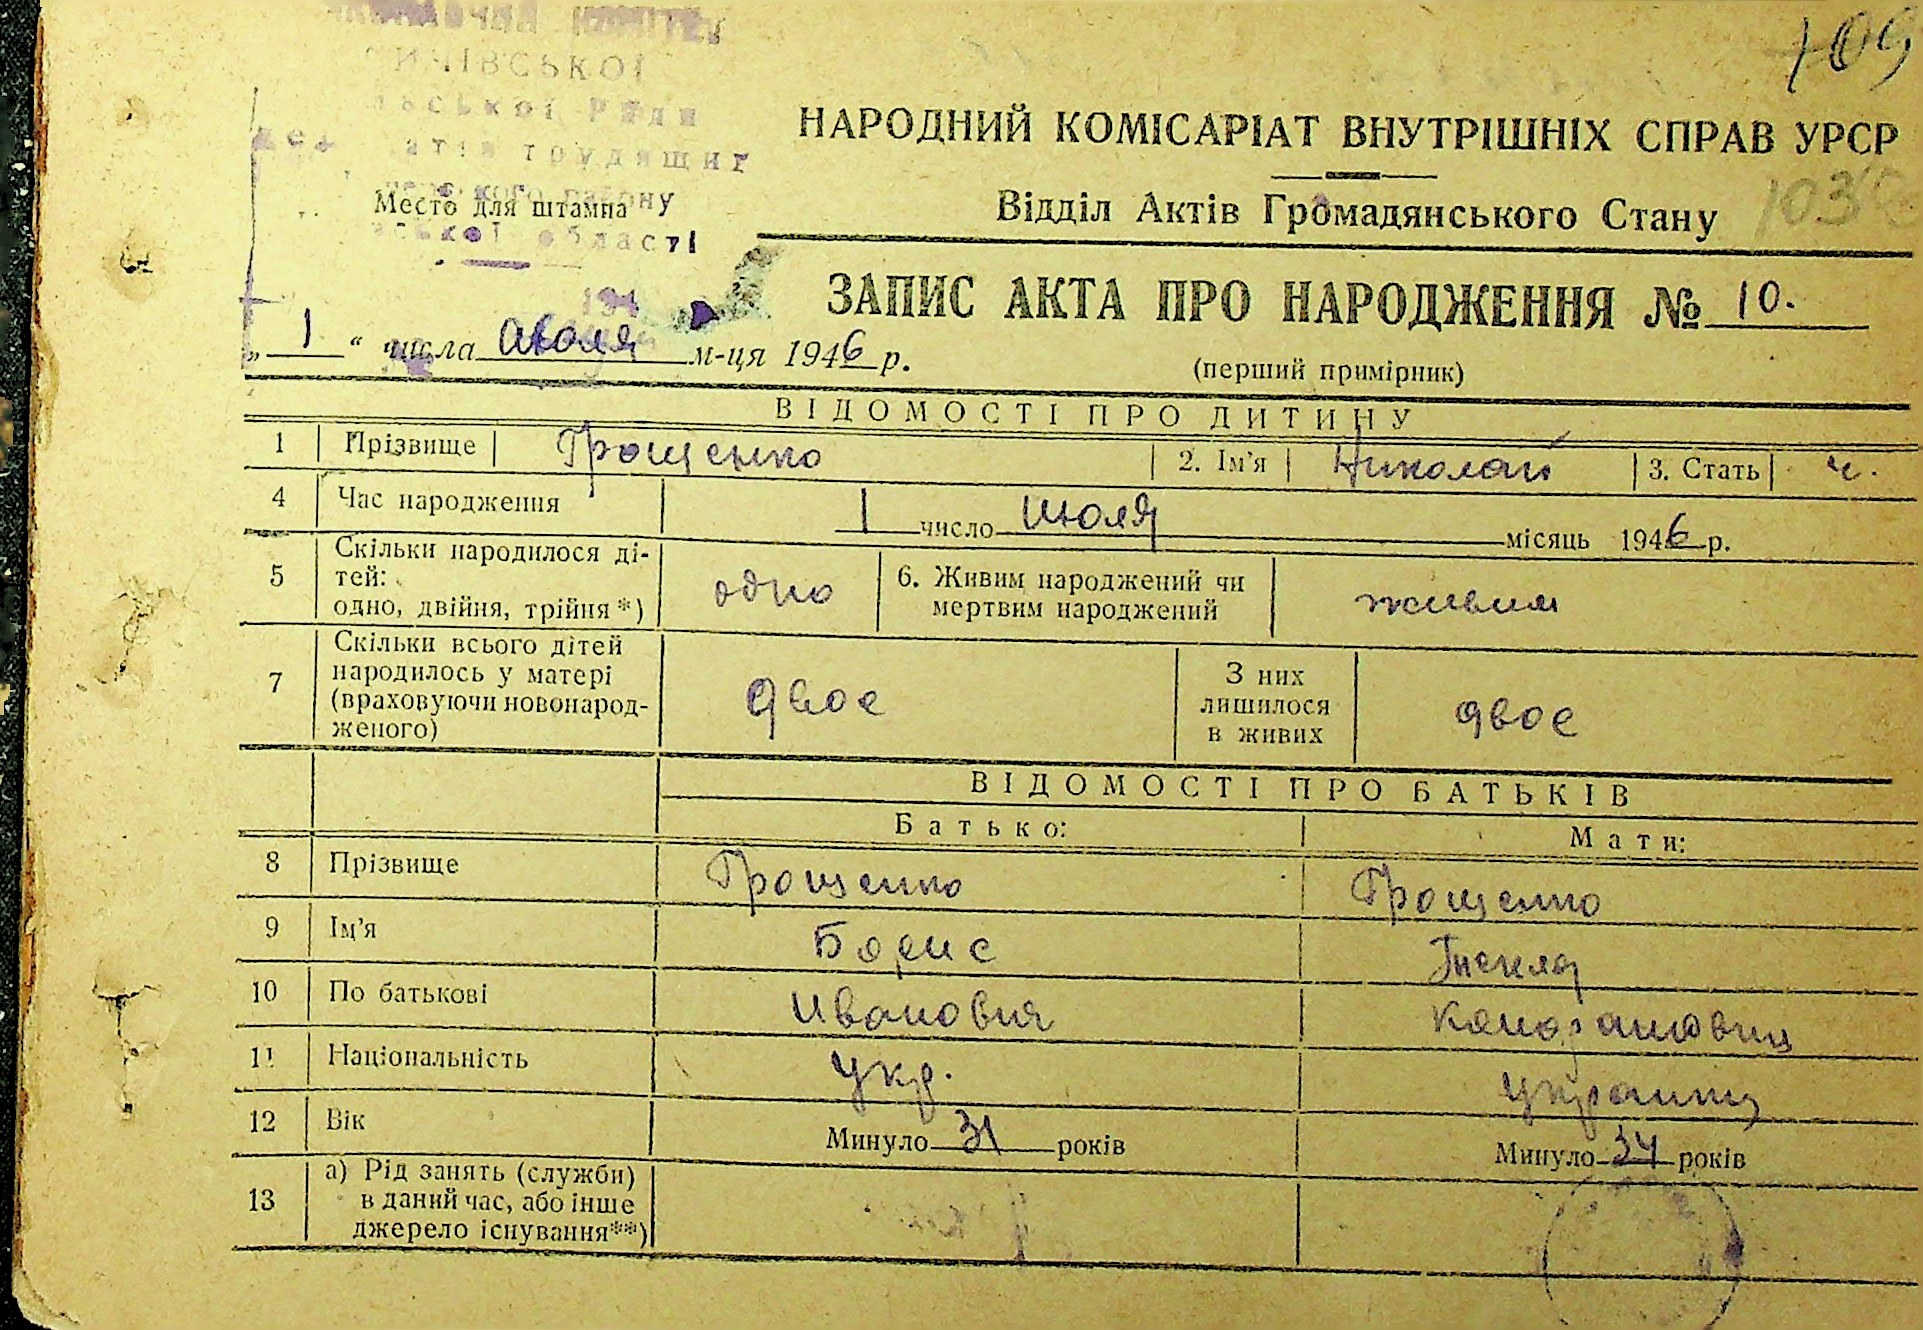 109
НАРОДНИЙ КОМІСАРІАТ ВНУТРІШНІХ СПРАВ УРСР
трудящих
Место для штампа
області
Відділ Актів Громадянського Стану
103
ЗАПИС АКТА ПРО НАРОДЖЕННЯ № 10.
„ 1 “ числа м-ця 1946 р.
(перший примірник)
ВІДОМОСТІ ПРО ДИТИНУ
1 Прізвище Грощенко 2. Ім'я Николай 3. Стать ч.
4 Час народження 1 число Июля місяць 1946 р.
5 Скільки народилося ді-
тей:
одно, двійня, трійня *) одно 6. Живим народжений чи
мертвим народжений живим
7 Скільки всього дітей
народилось у матері
(враховуючи новонарод-
женого) двое З них
лишилося
в живих двое
ВІДОМОСТІ ПРО БАТЬКІВ
Батько: Мати:
8 Прізвище Грощенко Грощенко
9 Ім'я Борис Текля
10 По батькові Иванович
11 Національність укр.
12 Вік Минуло 31 років Минуло 34 років
13 а) Рід занять (служби)
в даний час, або інше
джерело існування**)